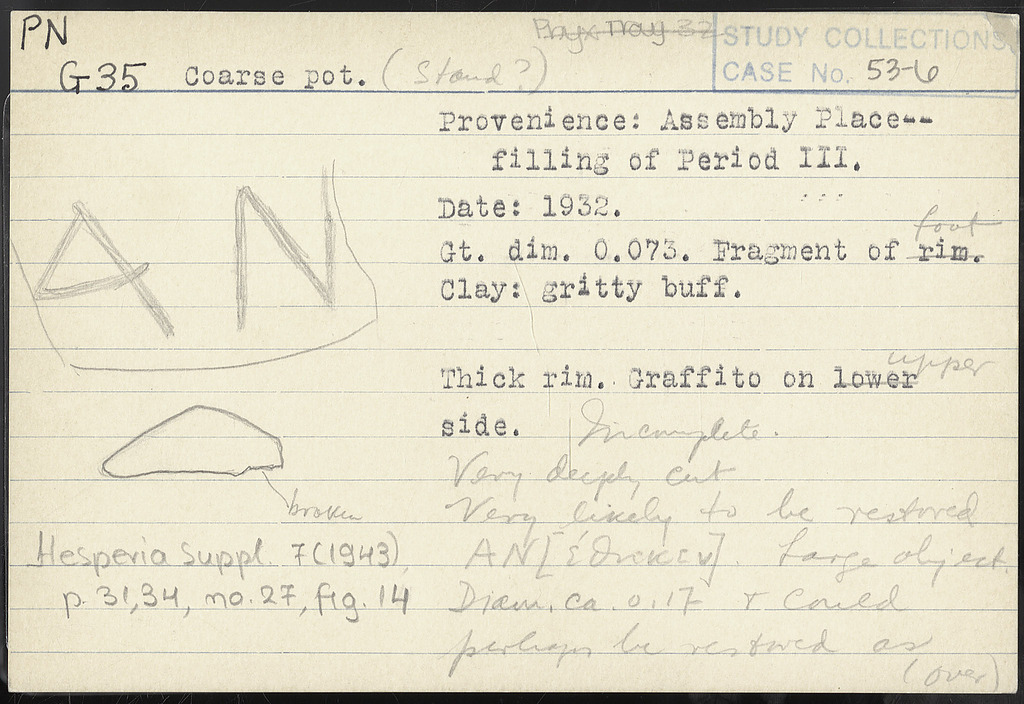 PN
Pnyx Tray 32
STUDY COLLECTIONS
CASE No. 53-6
G35 Coarse pot. (Stand?)
Provenience: Assembly Place--
filling of Period III.
Date: 1932.
foot
Gt. dim. 0.073. Fragment of rim.
Clay: gritty buff.
AN
upper
Thick rim. Graffito on lower
side. Incomplete.
Very deeply cut
broken
Very likely to be restored
Hesperia Suppl. 7 (1943),
AN[έθηκεν]. Large object.
p. 31,34, no. 27, fig. 14
Diam. ca. 0.17 & could
perhaps be restored as
(over)